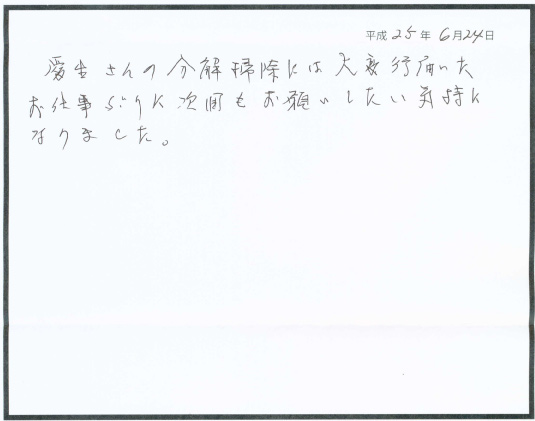 平成25年6月24日
愛生さんの分解掃除には大変行届いた
お仕事ぶりに次回もお願いしたい気持に
なりました。